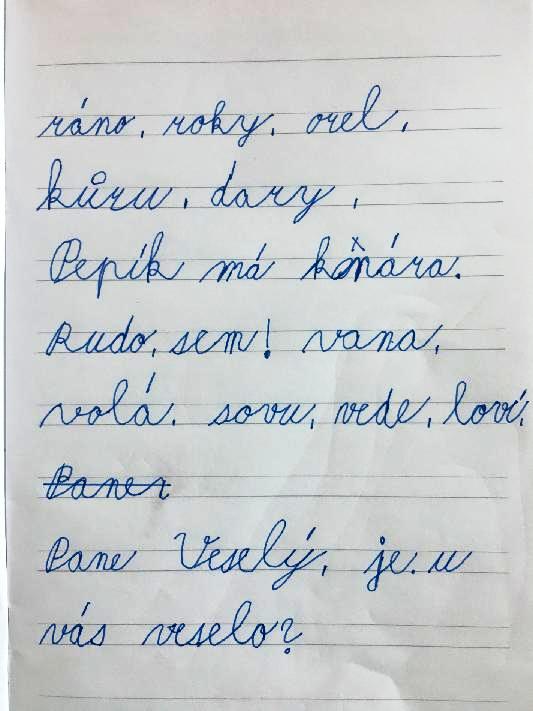 ráno, roky, orel,
kůru, dary,
Pepík má
Rudo, sem! vana,
volá. sovu, vede, loví,
Paner
Pane Veselý, je. u
vás veselo?